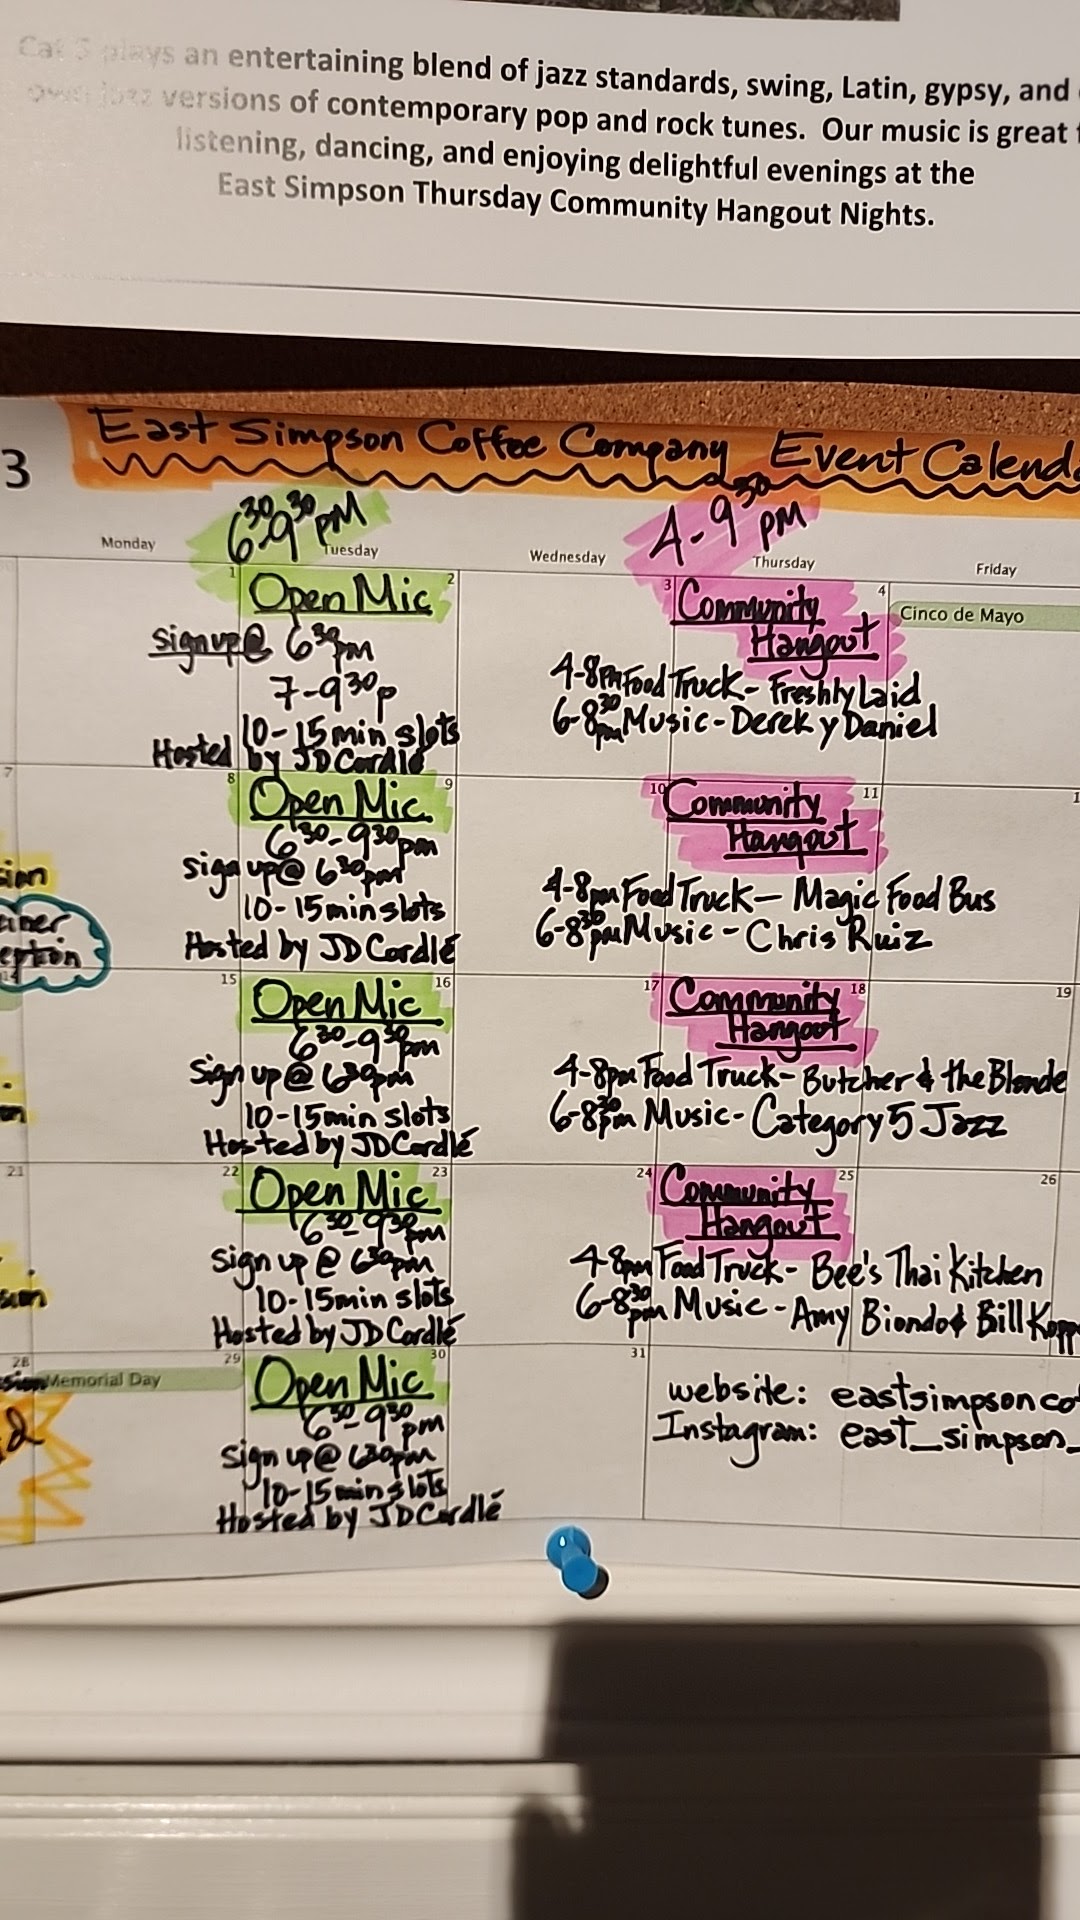 Cat 5 plays an entertaining blend of jazz standards, swing, Latin, gypsy, and
own jazz versions of contemporary pop and rock tunes. Our music is great
listening, dancing, and enjoying delightful evenings at the
East Simpson Thursday Community Hangout Nights.
3 East Simpson Coffee Company Event Calend
6:30-9:30 PM
4-9:30 PM
Monday Tuesday Wednesday Thursday Friday
1 2 3 4
Open Mic
sign up @ 6:30pm
7-9:30p
10-15 min slots
Hosted by JD Cordle
Community
Hangout
4-8PM Food Truck - Freshly Laid
6-8:30pm Music - Derek y Daniel
Cinco de Mayo
7 8 9 10 11 1
Open Mic
6:30-9:30pm
sign up @ 6:30pm
10-15min slots
Hosted by JD Cordlé
Community
Hangout
4-8pm Food Truck - Magic Food Bus
6-8:30pm Music - Chris Ruiz
14 15 16 17 18 19
Open Mic
6:30-9:30pm
Sign up @ 6:30pm
10-15min slots
Hosted by JD Cordlé
Community
Hangout
4-8pm Food Truck - Butcher & the Blonde
6-8:30pm Music - Category 5 Jazz
21 22 23 24 25 26
Open Mic
6:30-9:30pm
sign up @ 6:30pm
10-15min slots
Hosted by JD Cordlé
Community
Hangout
4-8pm Food Truck - Bee's Thai Kitchen
6-8:30pm Music - Amy Biondo & Bill Kopp
28 29 30 31
Memorial Day
Open Mic
6:30-9:30pm
sign up @ 6:30pm
10-15min slots
Hosted by JD Cordlé
website: eastsimpsonco
Instagram: east_simpson_